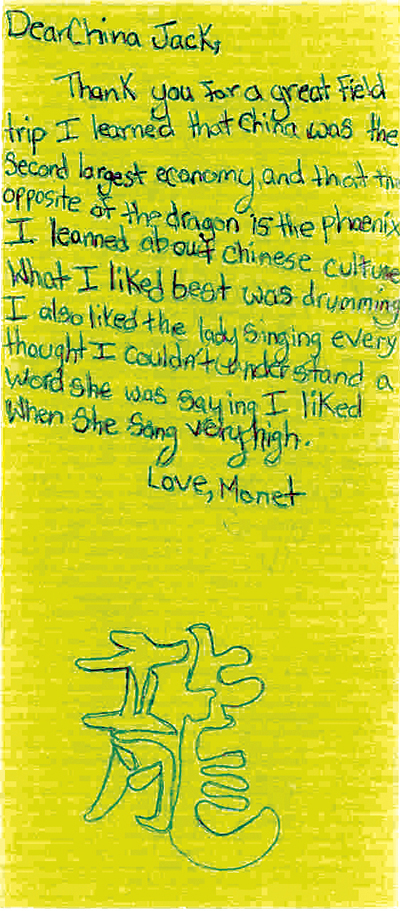 Dear China Jack,
Thank you for a great Field
trip I learned that China was the
Second largest economy, and that the
opposite of the dragon is the phoenix
I learned about chinese culture
What I liked best was drumming
I also liked the lady singing every
thought I couldn't understand a
word she was saying I liked
when She Sang very high.
Love, Monet
龍